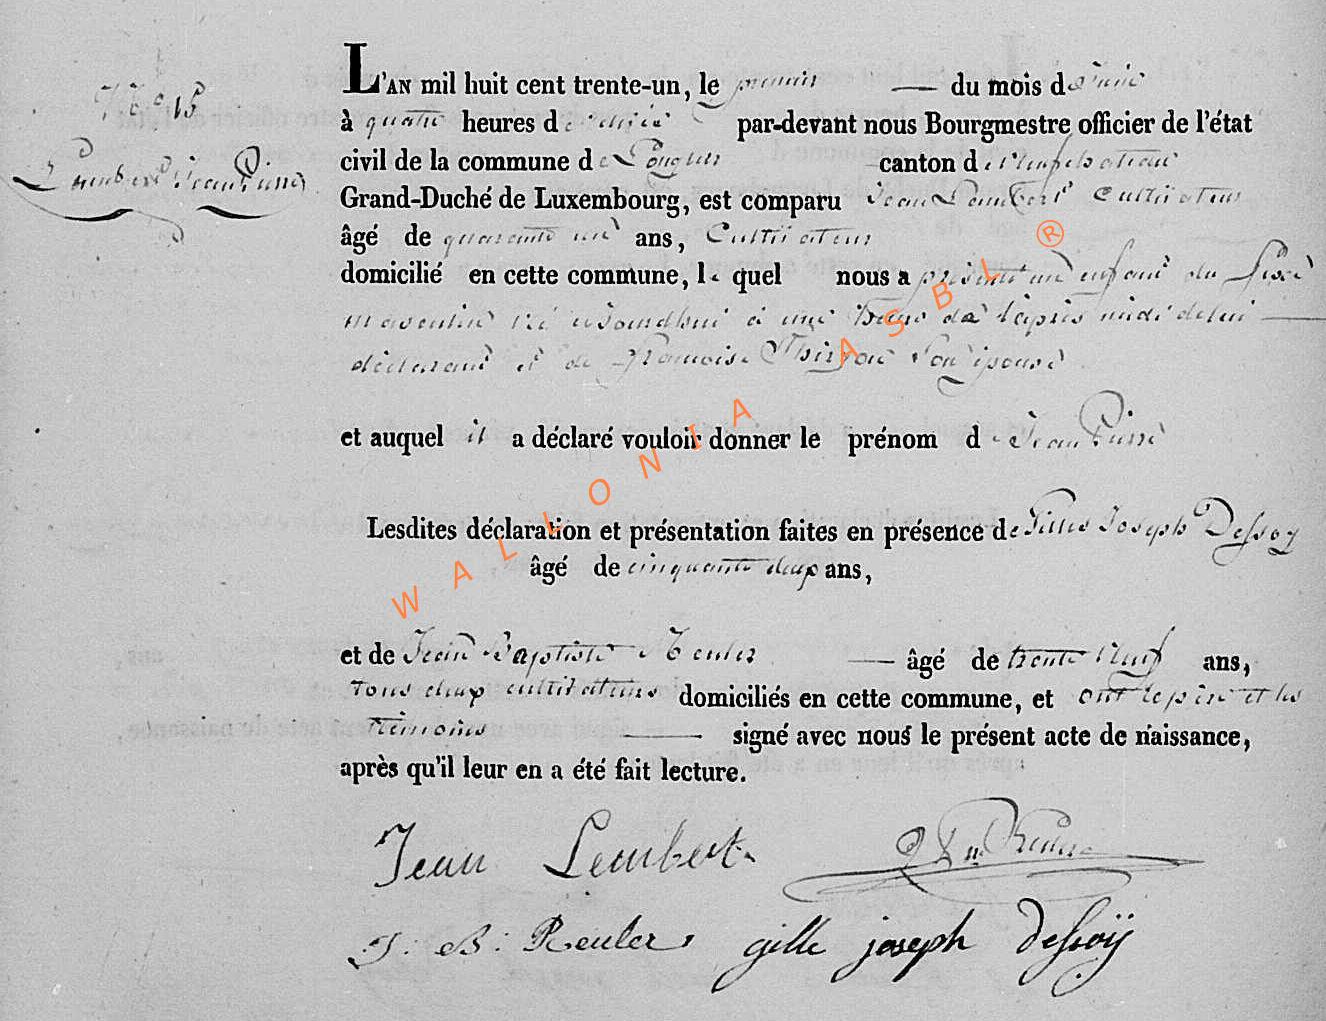 N° 15
Lambert Jean Pierre
L'AN mil huit cent trente-un, le premier du mois d
à quatre heures de par-devant nous Bourgmestre officier de l'état
civil de la commune de Longlier canton de Neufchateau
Grand-Duché de Luxembourg, est comparu Jean Lambert Cultivateur
âgé de quarante un ans, Cultivateur
domicilié en cette commune, le quel nous a présenté un enfant du sexe
masculin né ajourdhui à une heure de l'après midi de lui
déclarant et de Françoise Thiry son épouse
et auquel il a déclaré vouloir donner le prénom de Jean Pierre
Lesdites déclaration et présentation faites en présence de Gille Joseph Dessoy
âgé de cinquante deux ans,
et de Jean Baptiste Reuler âgé de trente neuf ans,
tous deux cultivateurs domiciliés en cette commune, et ont le père et les
témoins signé avec nous le présent acte de naissance,
après qu'il leur en a été fait lecture.
Jean Lembert
J: B: Reuler gille joseph dessoÿ
WALLONIA ASBL ®